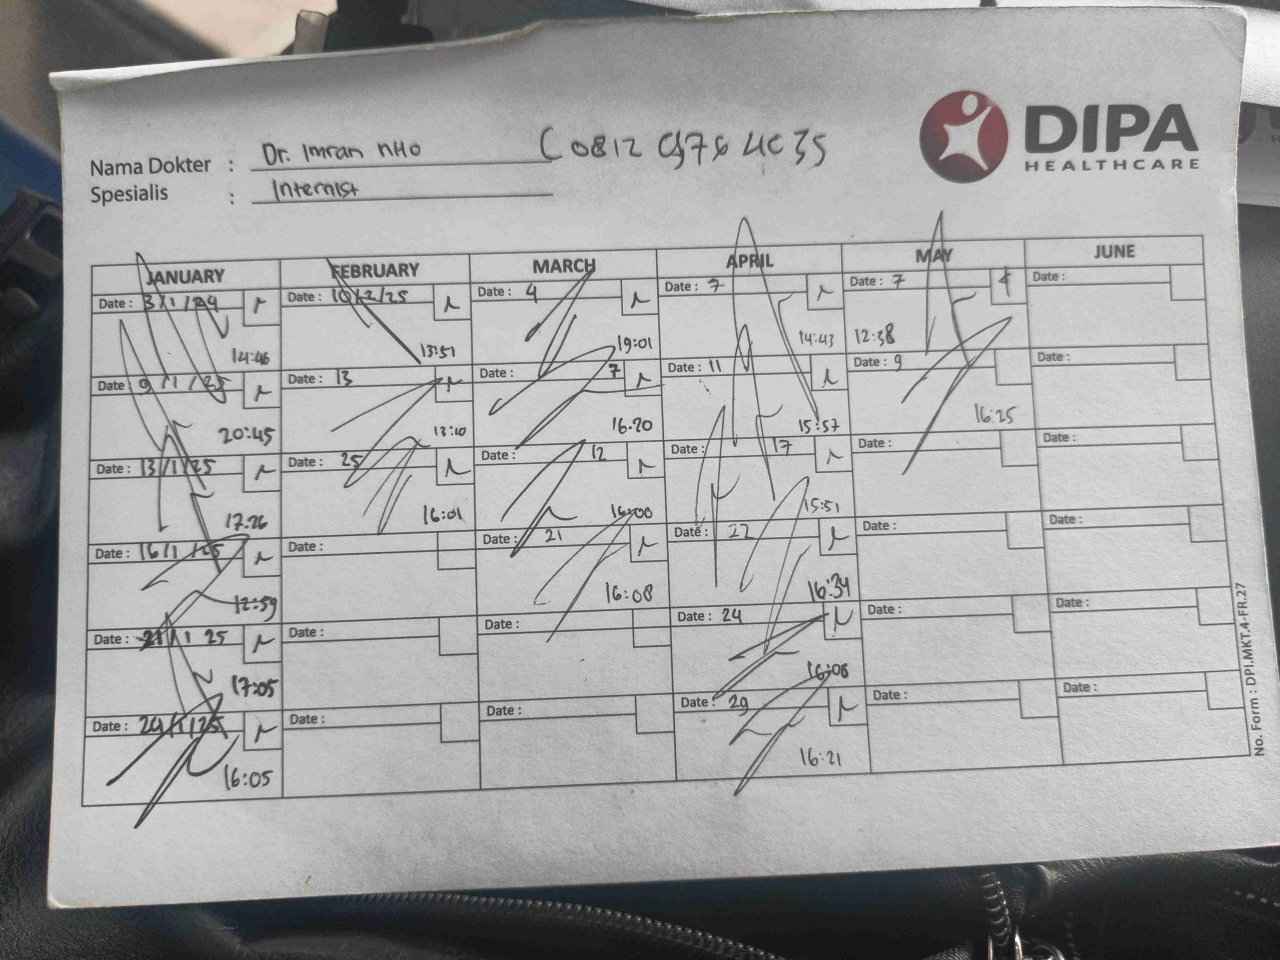 DIPA
HEALTHCARE
Nama Dokter : Dr. Imran NHO
Spesialis : Internist
JANUARY FEBRUARY MARCH APRIL MAY JUNE
Date : 3/1/24 Date : 10/2/25 Date : 4 Date : 7 Date : 7 Date :
14:46 13:51 19:01 14:43 12:38
Date : 9/1/25 Date : 13 Date : 7 Date : 11 Date : 9 Date :
20:45 13:10 16.20 15:57 16:25
Date : 13/1/25 Date : 25 Date : 12 Date : 17 Date : Date :
17.26 16:01 16:00 15:51
Date : 16/1/25 Date : Date : 21 Date : 22 Date : Date :
12:59 16:08 16:34
Date : 21/1 25 Date : Date : Date : 24 Date : Date :
17:05 16:08
Date : 24/1/25 Date : Date : Date : 29 Date : Date :
16:05 16:21
No. Form : DPI.MKT.4-FR.27